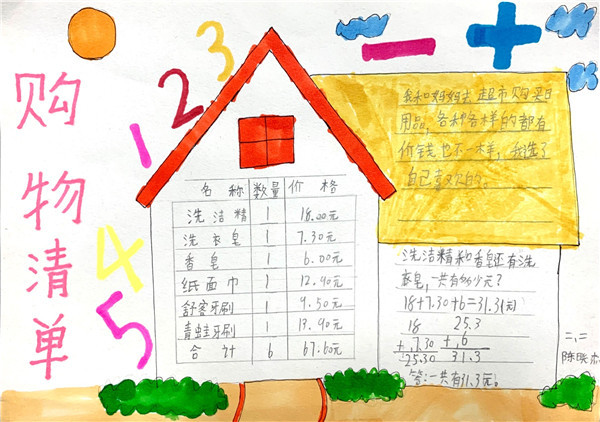 购物清单
1 2 3 4 5
- +
我和妈妈去超市购买日
用品,各种各样的都有
价钱也不一样,我选了
自己喜欢的。
名称 数量 价格
洗洁精 1 18.00元
洗衣皂 1 7.30元
香皂 1 6.00元
纸面巾 1 12.90元
舒客牙刷 1 9.50元
青蛙牙刷 1 13.90元
合计 6 67.60元
洗洁精和香皂还有洗
衣皂,一共有多少元?
18+7.30+6=31.3(元)
18 25.3
+ 7.30 + 6
25.30 31.3
答:一共有31.3元。
二,二
陈